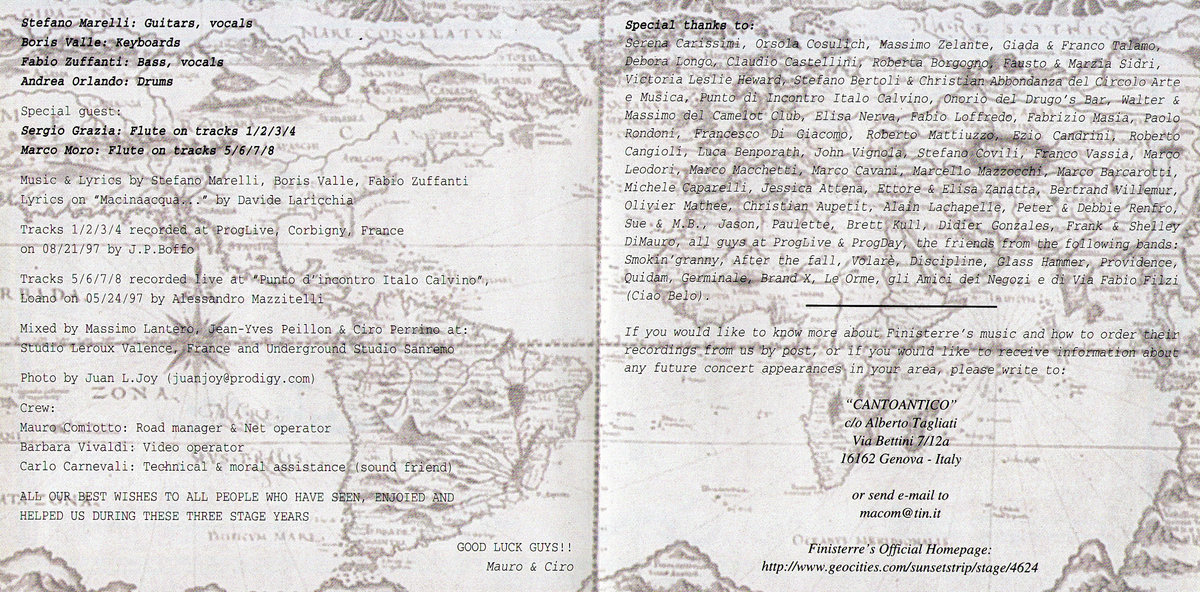 Stefano Marelli: Guitars, vocals
Boris Valle: Keyboards
Fabio Zuffanti: Bass, vocals
Andrea Orlando: Drums
Special guest:
Sergio Grazia: Flute on tracks 1/2/3/4
Marco Moro: Flute on tracks 5/6/7/8
Music & Lyrics by Stefano Marelli, Boris Valle, Fabio Zuffanti
Lyrics on "Macinaacqua..." by Davide Laricchia
Tracks 1/2/3/4 recorded at ProgLive, Corbigny, France
on 08/21/97 by J.P.Boffo
Tracks 5/6/7/8 recorded live at "Punto d'incontro Italo Calvino",
Loano on 05/24/97 by Alessandro Mazzitelli
Mixed by Massimo Lantero, Jean-Yves Peillon & Ciro Perrino at:
Studio Leroux Valence, France and Underground Studio Sanremo
Photo by Juan L.Joy (juanjoy@prodigy.com)
Crew:
Mauro Comiotto: Road manager & Net operator
Barbara Vivaldi: Video operator
Carlo Carnevali: Technical & moral assistance (sound friend)
ALL OUR BEST WISHES TO ALL PEOPLE WHO HAVE SEEN, ENJOIED AND
HELPED US DURING THESE THREE STAGE YEARS
GOOD LUCK GUYS!!
Mauro & Ciro
Special thanks to:
Serena Carissimi, Orsola Cosulich, Massimo Zelante, Giada & Franco Talamo,
Debora Longo, Claudio Castellini, Roberta Borgogno, Fausto & Marzia Sidri,
Victoria Leslie Heward, Stefano Bertoli & Christian Abbondanza del Circolo Arte
e Musica, Punto di Incontro Italo Calvino, Onorio del Drugo's Bar, Walter &
Massimo del Camelot Club, Elisa Nerva, Fabio Loffredo, Fabrizio Masia, Paolo
Rondoni, Francesco Di Giacomo, Roberto Mattiuzzo, Ezio Candrini, Roberto
Cangioli, Luca Benporath, John Vignola, Stefano Covili, Franco Vassia, Marco
Leodori, Marco Macchetti, Marco Cavani, Marcello Mazzocchi, Marco Barcarotti,
Michele Caparelli, Jessica Attena, Ettore & Elisa Zanatta, Bertrand Villemur,
Olivier Mathée, Christian Aupetit, Alain Lachapelle, Peter & Debbie Renfro,
Sue & M.B., Jason, Paulette, Brett Kull, Didier Gonzales, Frank & Shelley
DiMauro, all guys at ProgLive & ProgDay, the friends from the following bands:
Smokin'granny, After the fall, Volarè, Discipline, Glass Hammer, Providence,
Quidam, Germinale, Brand X, Le Orme, gli Amici dei Negozi e di Via Fabio Filzi
(Ciao Belo).
If you would like to know more about Finisterre's music and how to order their
recordings from us by post, or if you would like to receive information about
any future concert appearances in your area, please write to:
"CANTOANTICO"
c/o Alberto Tagliati
Via Bettini 7/12a
16162 Genova - Italy
or send e-mail to
macom@tin.it
Finisterre's Official Homepage:
http://www.geocities.com/sunsetstrip/stage/4624